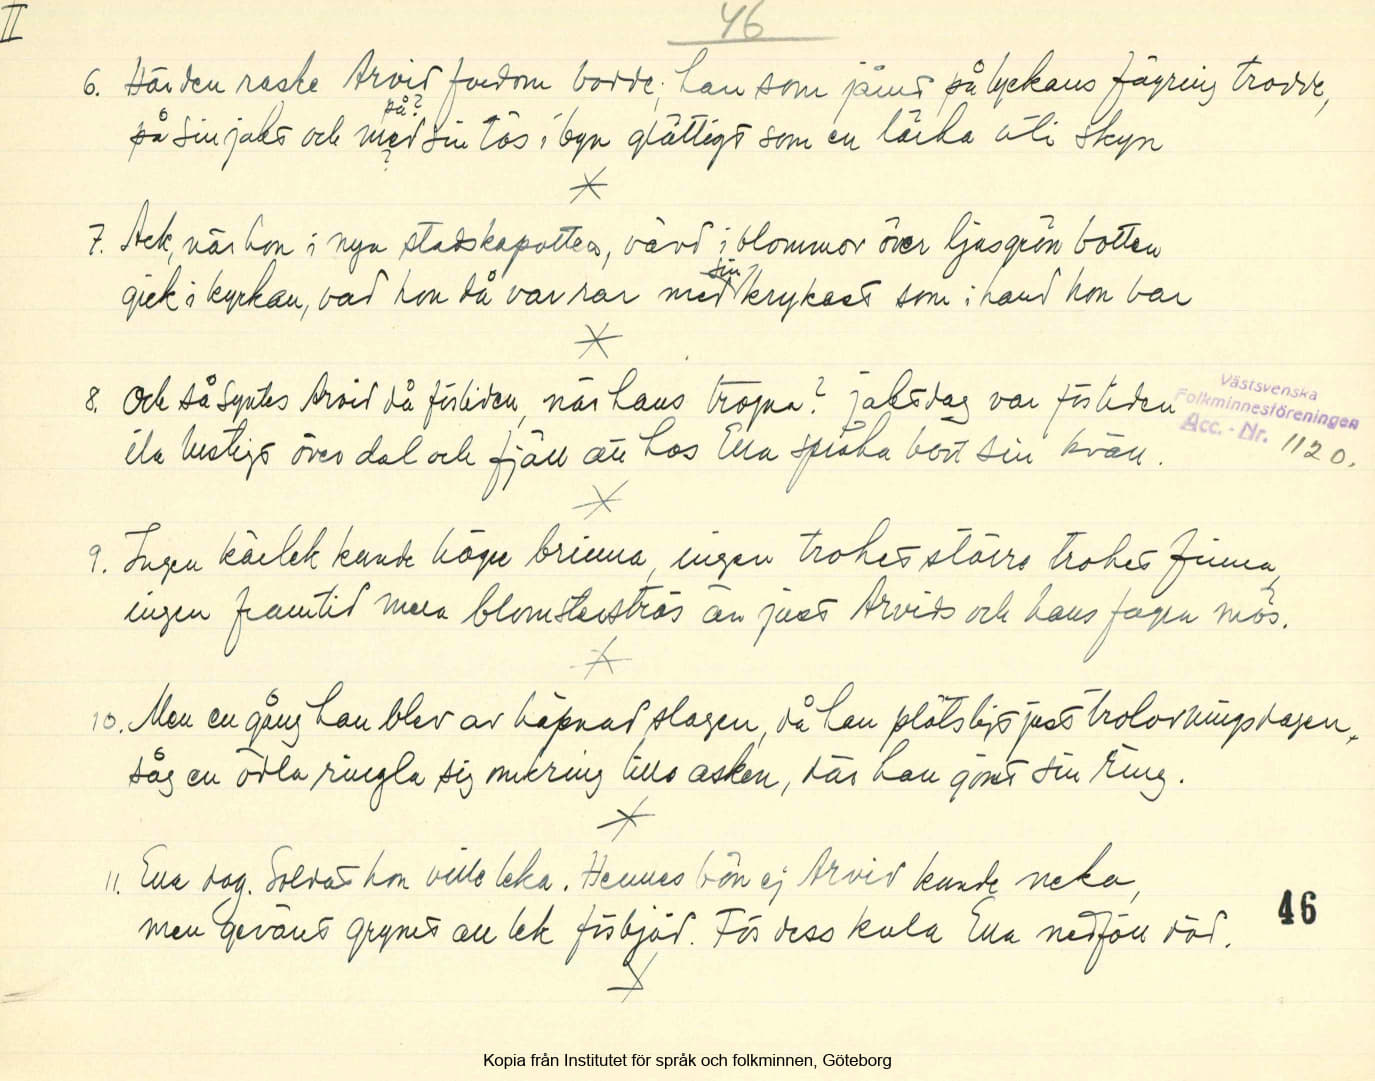 II
46
6. Här den raske Arvid fordom bodde; han som jämt på lyckans fägring trodde,
på?
på sin jakt och med sin tös i byn glättigt som en lärka uti skyn
?
7. Ack, när hon i nya stadskapotten, vävd i blommor över ljusgrön botten
sin
gick i kyrkan, vad hon då var rar med krykast som i hand hon bar
8. Och så syntes Arvid då förtiden, när hans trogna? jaktdag var förliden
ila hurtigt över dal och fjäll att hos Ella språka bort sin kväll.
9. Ingen kärlek kunde högre brinna, ingen trohet större trohet finna,
ingen framtid mera blomsterströs än just Arvids och hans fagra mös.
10. Men en gång han blev av häpnad slagen, då han plötsligt just trolovningsdagen,
såg en ödla ringla sig omkring lilla asken, där han gömt sin ring.
11. Ella dag. Soldat hon ville leka. Hennes bön ej Arvid kunde neka,
men geväret grymt all lek förbjöd. För dess kula Ella nedföll död.
Västsvenska
Folkminnesföreningen
Acc. - Nr. 1120.
46
Kopia från Institutet för språk och folkminnen, Göteborg